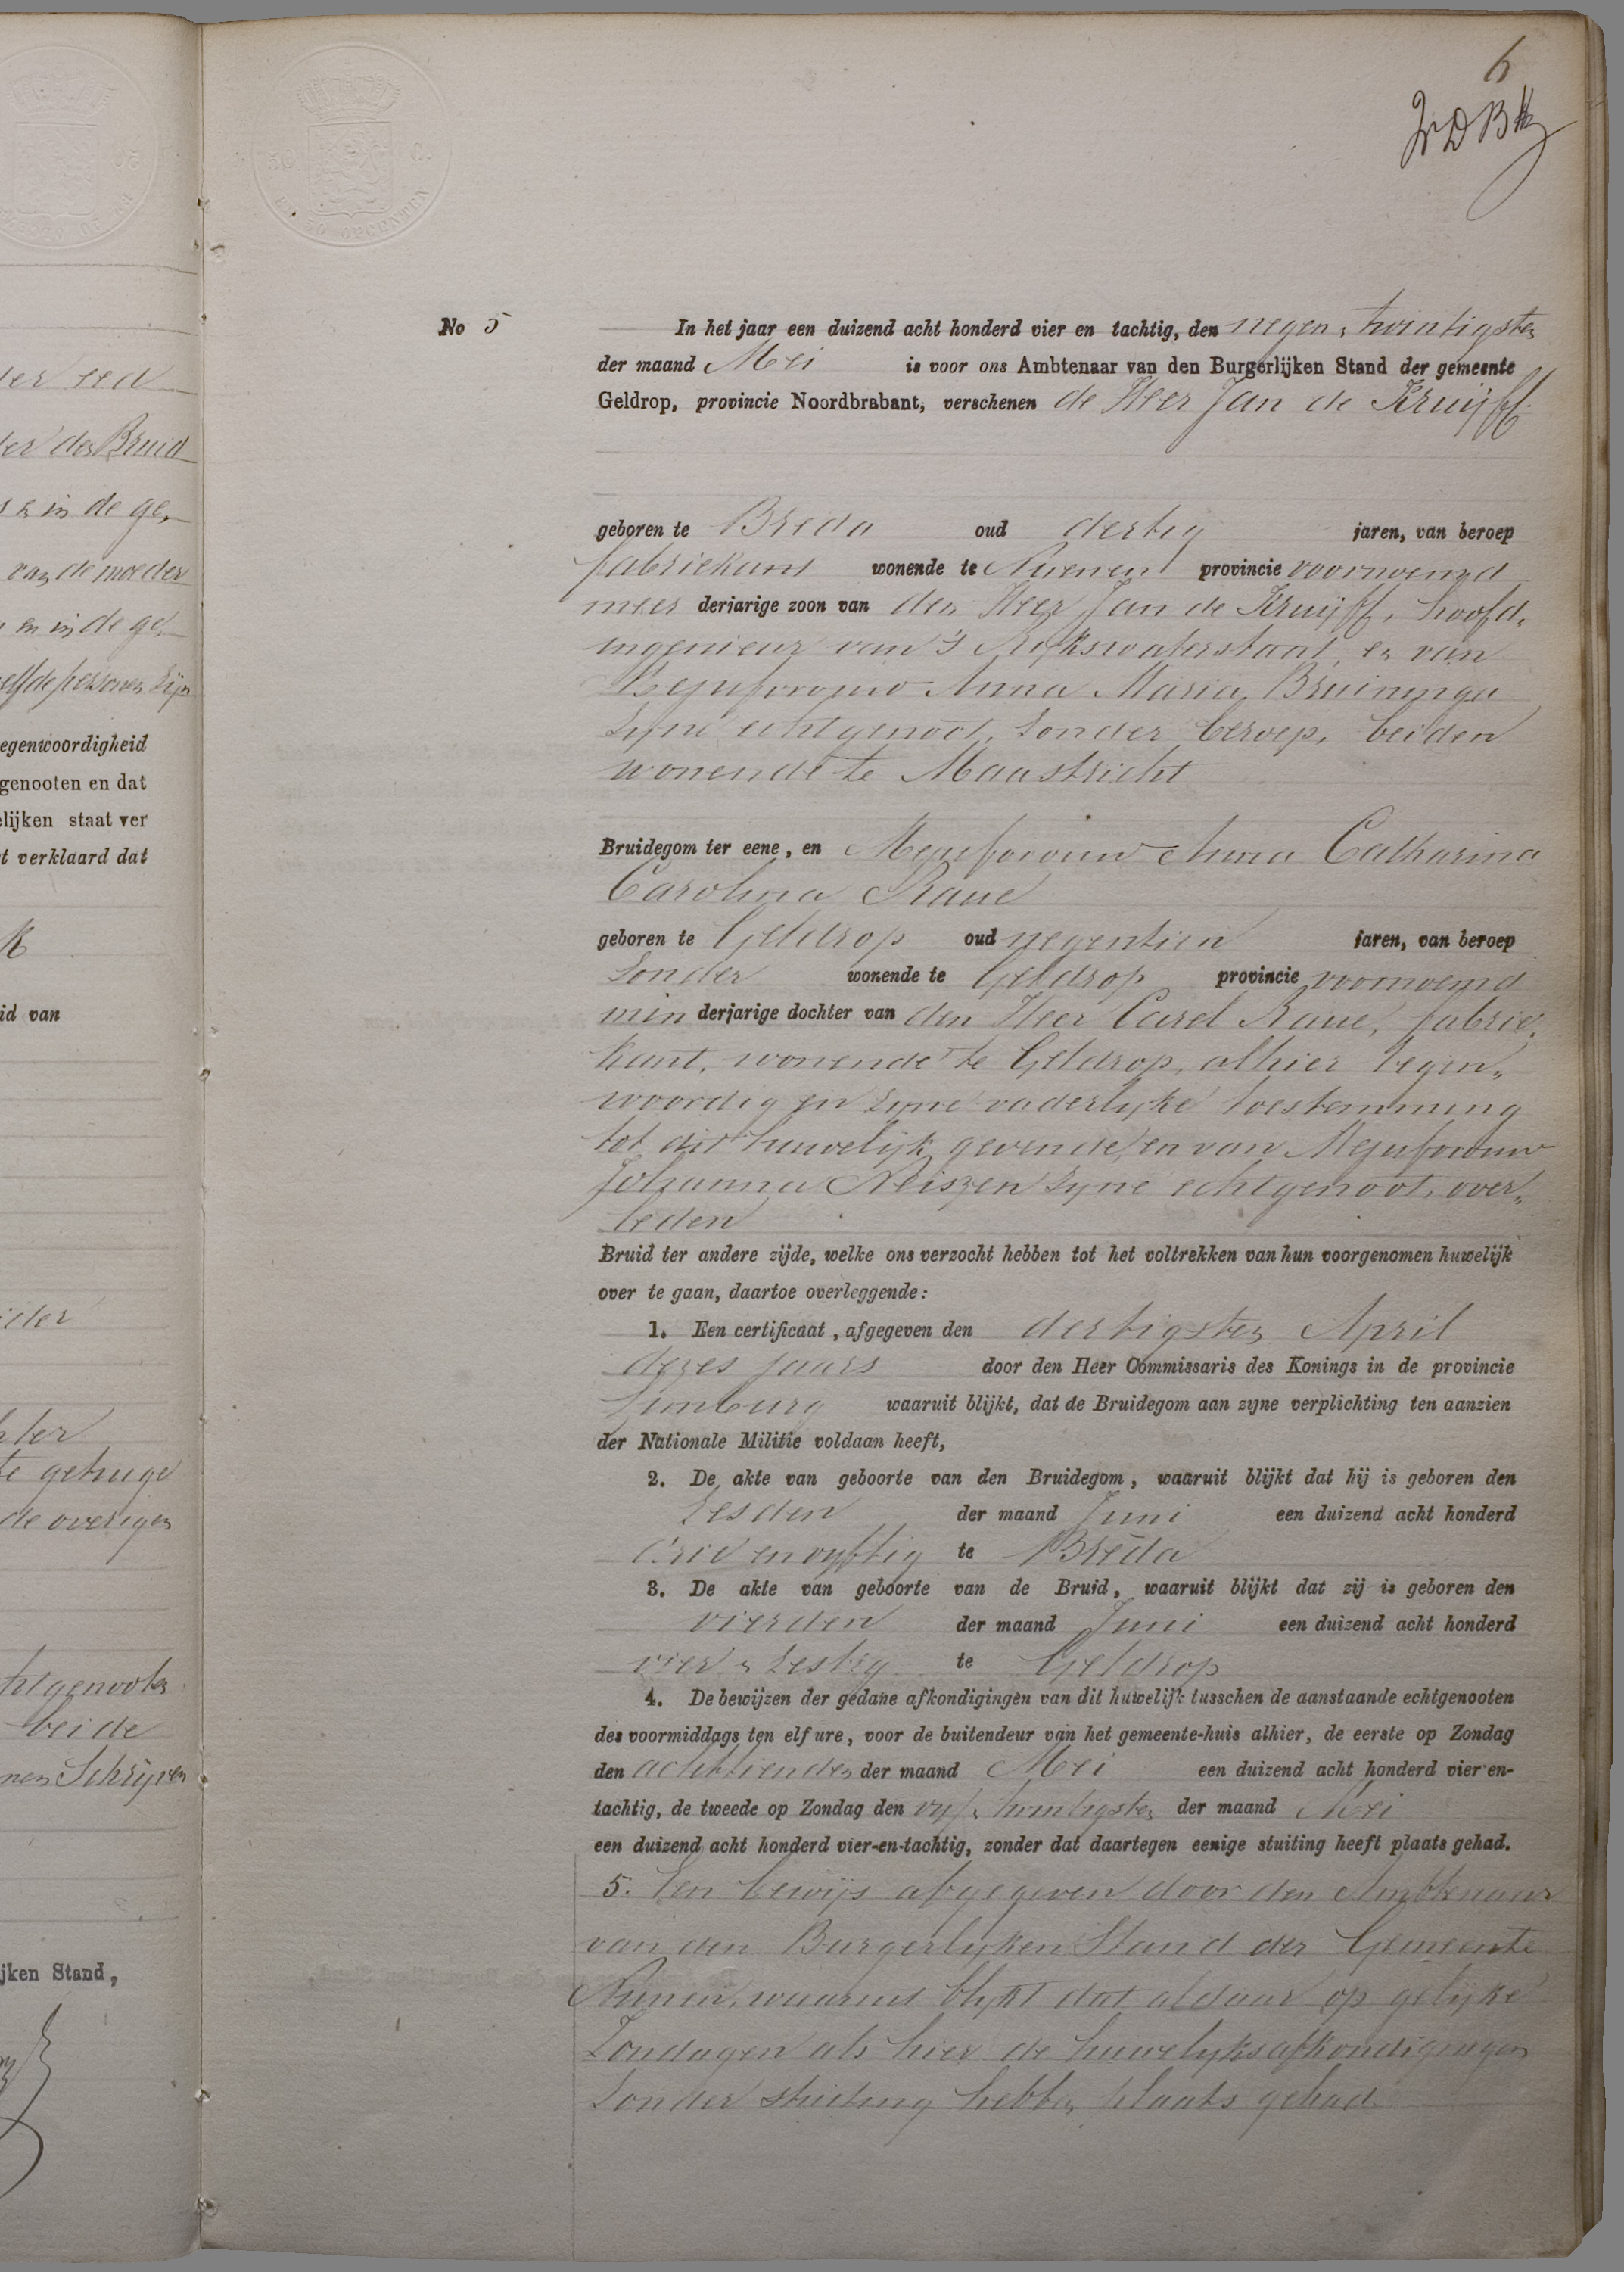 6
No 5
In het jaar een duizend acht honderd vier en tachtig, den negen & twintigsten
der maand Mei is voor ons Ambtenaar van den Burgerlijken Stand der gemeente
Geldrop, provincie Noordbrabant, verschenen de Heer Jan de Kruijff.
geboren te Breda oud dertig jaren, van beroep
fabriekant wonende te Nuenen provincie voornoemd
meer derjarige zoon van den Heer Jan de Kruijff, hoofd„
ingenieur van 's Rijkswaterstaat, en van
Mejufvrouw Anna Maria Bruininga
zyne echtgenoot, zonder beroep, beiden
wonende te Maastricht
Bruidegom ter eene, en Mejufvrouw Anna Catharina
Carolina Raue
geboren te Geldrop oud negentien jaren, van beroep
zonder wonende te Geldrop provincie voornoemd
min derjarige dochter van den Heer Carel Raue, fabrie„
kant, wonende te Geldrop, alhier tegen„
woordig en zyne vaderlyke toestemming
tot dit huwelijk gevende, en van Mejufvrouw
Johanna zyne echtgenoot, over„
leden
Bruid ter andere zijde, welke ons verzocht hebben tot het voltrekken van hun voorgenomen huwelijk
over te gaan, daartoe overleggende:
1. Een certificaat, afgegeven den dertigsten April
dezes jaars door den Heer Commissaris des Konings in de provincie
Limburg waaruit blijkt, dat de Bruidegom aan zyne verplichting ten aanzien
der Nationale Militie voldaan heeft,
2. De akte van geboorte van den Bruidegom, waaruit blijkt dat hij is geboren den
zesden der maand Juni een duizend acht honderd
drie en vyftig te Breda
3. De akte van geboorte van de Bruid, waaruit blijkt dat zij is geboren den
vierden der maand Juni een duizend acht honderd
vier & zestig te Geldrop
4. De bewijzen der gedane afkondigingen van dit huwelijk tusschen de aanstaande echtgenooten
des voormiddags ten elf ure, voor de buitendeur van het gemeente-huis alhier, de eerste op Zondag
den achttienden der maand Mei een duizend acht honderd vier en-
tachtig, de tweede op Zondag den vyf & twintigsten der maand Mei
een duizend acht honderd vier-en-tachtig, zonder dat daartegen eenige stuiting heeft plaats gehad.
5. Een bewijs afgegeven door den Ambtenaar
van den Burgerlyken Stand der Gemeente
Nunen, waaruit blykt dat aldaar op gelijke
Zondagen als hier de huwelyksafkondigingen
zonder stuiting hebben plaats gehad